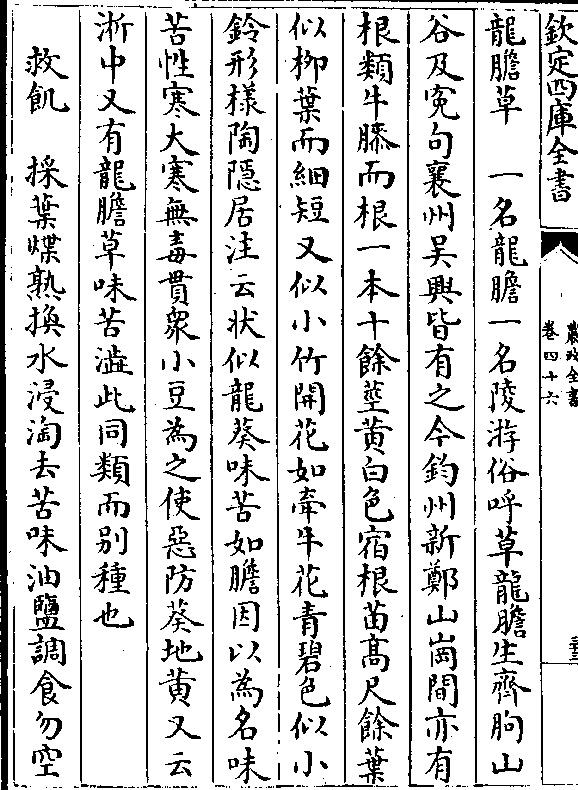 欽定四庫全書
農政全書
卷四十六
三十三
龍膽草　一名龍膽一名陵游俗呼草龍膽生齊朐山
谷及寃句襄州吴興皆有之今鈞州新鄭山崗間亦有
根類牛膝而根一本十餘莖黄白色宿根苗髙尺餘葉
似柳葉而細短又似小竹開花如牽牛花青碧色似小
鈴形様陶隱居注云状似龍葵味苦如膽因以為名味
苦性寒大寒無毒貫衆小豆為之使惡防葵地黄又云
浙中又有龍膽草味苦澁此同類而别種也
救飢　採葉煠熟換水浸淘去苦味油鹽調食勿空